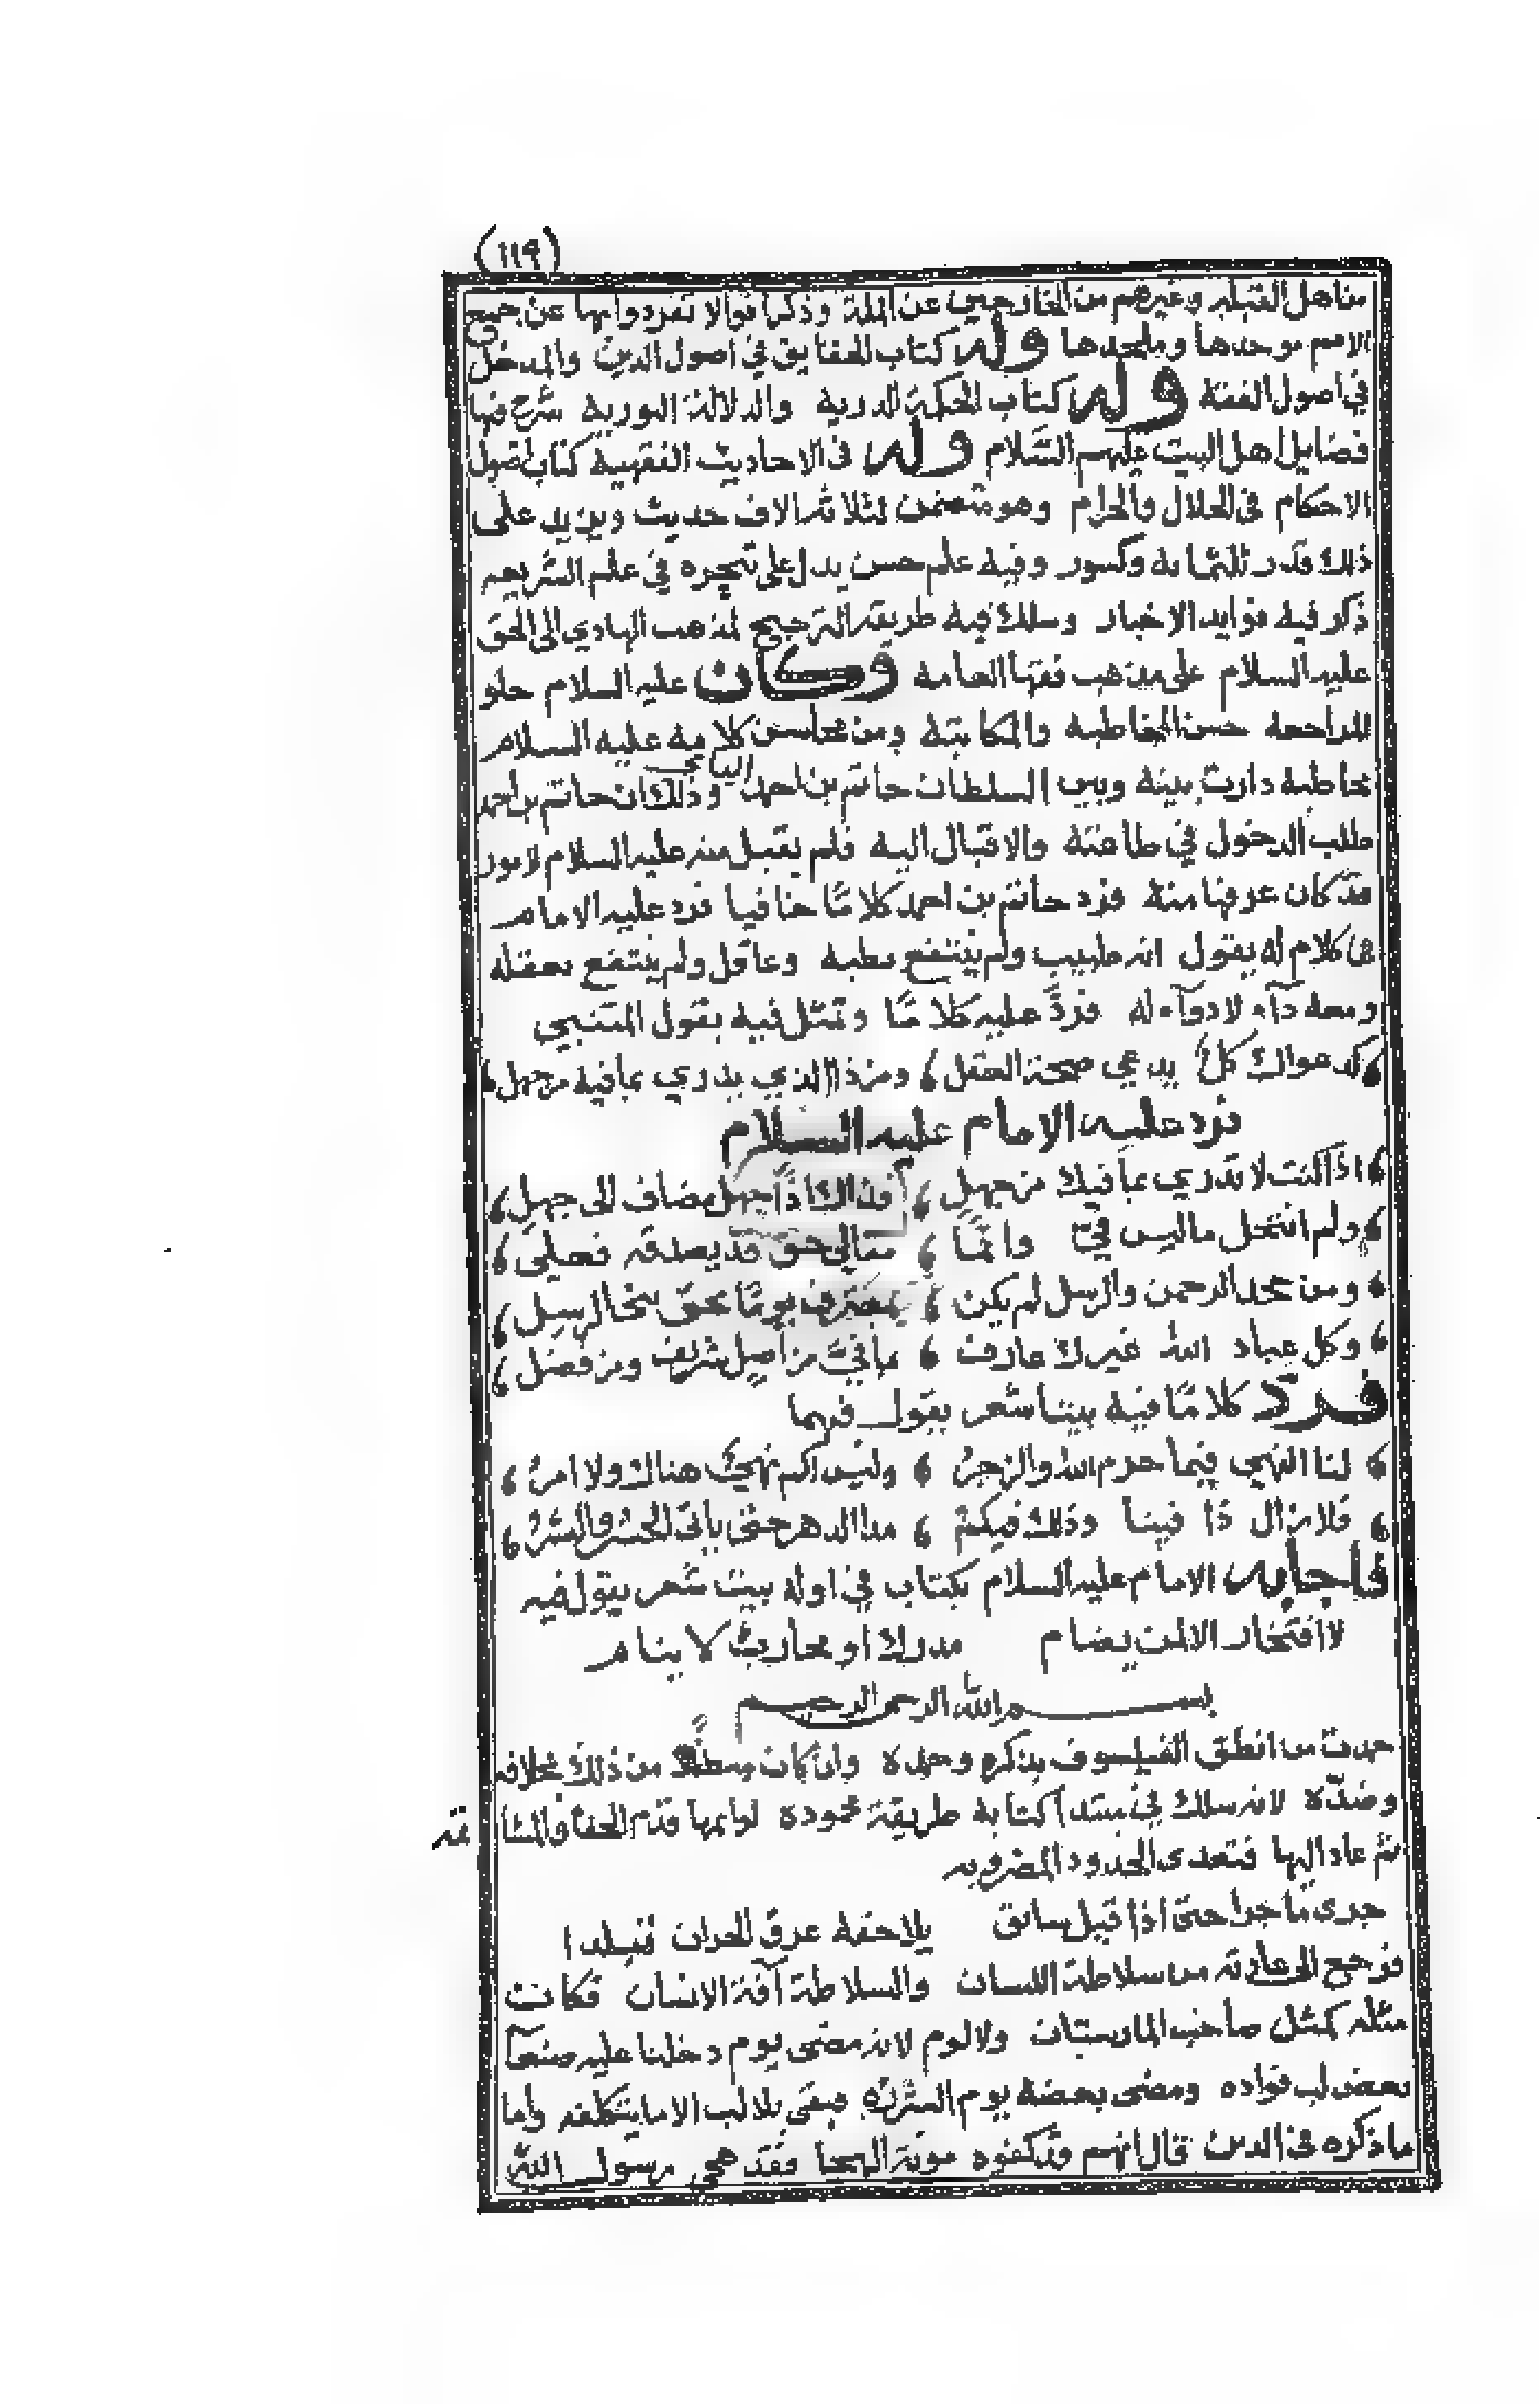 (١١٩)
من اهل القبله وغيرهم من الخارجين عن الملة وذكر اقوالا تفردوا بها عن جميع
الامم موحدها وملحدها وله كتاب الحقايق في اصول الدين والمدخل
في اصول الفقه وله كتاب الحكمة الدرية والدلالة النورية شرح فيها
فضايل اهل البيت عليهم السَّلام وله فى الاحاديث الفقهية كتاب اصول
الاحكام فى الحلال والحرام وهو متضمن لثلاثه الاف حديث ويزيد على
ذلك قدر ثلثمايه وكسور وفيه علم حسن يدل على تبحره في علم الشريعه
ذكر فيه فوايد الاخبار وسلك فيه طريقه الترجيح لمذهب الهادي الى الحق
عليه السلام على مذهب فقها العامه وكان عليه السلام حلو
المراجعه حسن المخاطبه والمكاتبة ومن محاسن كلامه عليه السلام
مخاطبه دارت بينه وبين السلطان حاتم بن احمد اليامي وذلك ان حاتم بن احمد
طلب الدخول في طاعته والاقبال اليه فلم يقبل منه عليه السلام لامور
قد كان عرفها منه فرد حاتم بن احمد كلامًا جافيا فرد عليه الامام
في كلام له يقول انه طبيب ولم ينتفع بطبه وعاقل ولم ينتفع بعقله
ومعه داء لا دوآء له فردَّ عليه كلامًا وتمثل فيه بقول المتنبي
كدعواك كلٌ يدعي صحة العقل ومن ذا الذي يدري بما فيه من جهل
فرد عليه الامام عليه السلام
اذا كنت لا تدري بما فيك من جهل فذاك اذًا جهل مضاف الى جهل
ولم انتحل ما ليس فيّ وانمَّا مقالي حق قد يصدقه فعلي
ومن جحد الرحمن والرسل لم يكن بمعترف يومًا بحق بنى الرسل
وكل عباد الله غيرك عارف بما فيَّ من اصل شريف ومن فضل
فرد كلامًا فيه بيتا شعر يقول فيهما
لنا النهي فيما حرم الله والزجرُ وليس لكم نهيٌ هناك ولا امرُ
فلا زال ذا فينا وذلك فيكمُ مدا الدهر حتى يأتى الحشر والنشرُ
فاجابه الامام عليه السلام بكتاب في اوله بيت شعر يقول فيه
لا افتخار الا لمن يضام مدرك او محارب لا ينام
بسم الله الرحمن الرحيم
حمدت من انطق الفيلسوف بذكره وحمده وان كان من ذلك بخلافه
وضدّه لانه سلك في مبتدا كتابه طريقة محموده لو اتمها قدم الجفا والمشاققه
ثم عاد اليها فتعدى الحدود المضروبه
جرى ما جرا حتى اذا قيل سابق يلاحقه عرق الحران فتبلدا
فرجع الى عادته من سلاطة اللسان والسلاطة آفة الانسان فكانت
مثله كمثل صاحب المارستان ولا لوم لانه مضى يوم دخلنا عليه صنعآ
بعض لب فواده ومضى بعضه يوم الشرزه فبقى بلا لب الا ما يتكلفه واما
ما ذكره فى الدين قال انهم قد كفوه مونة الهجا فقد هجي رسول الله